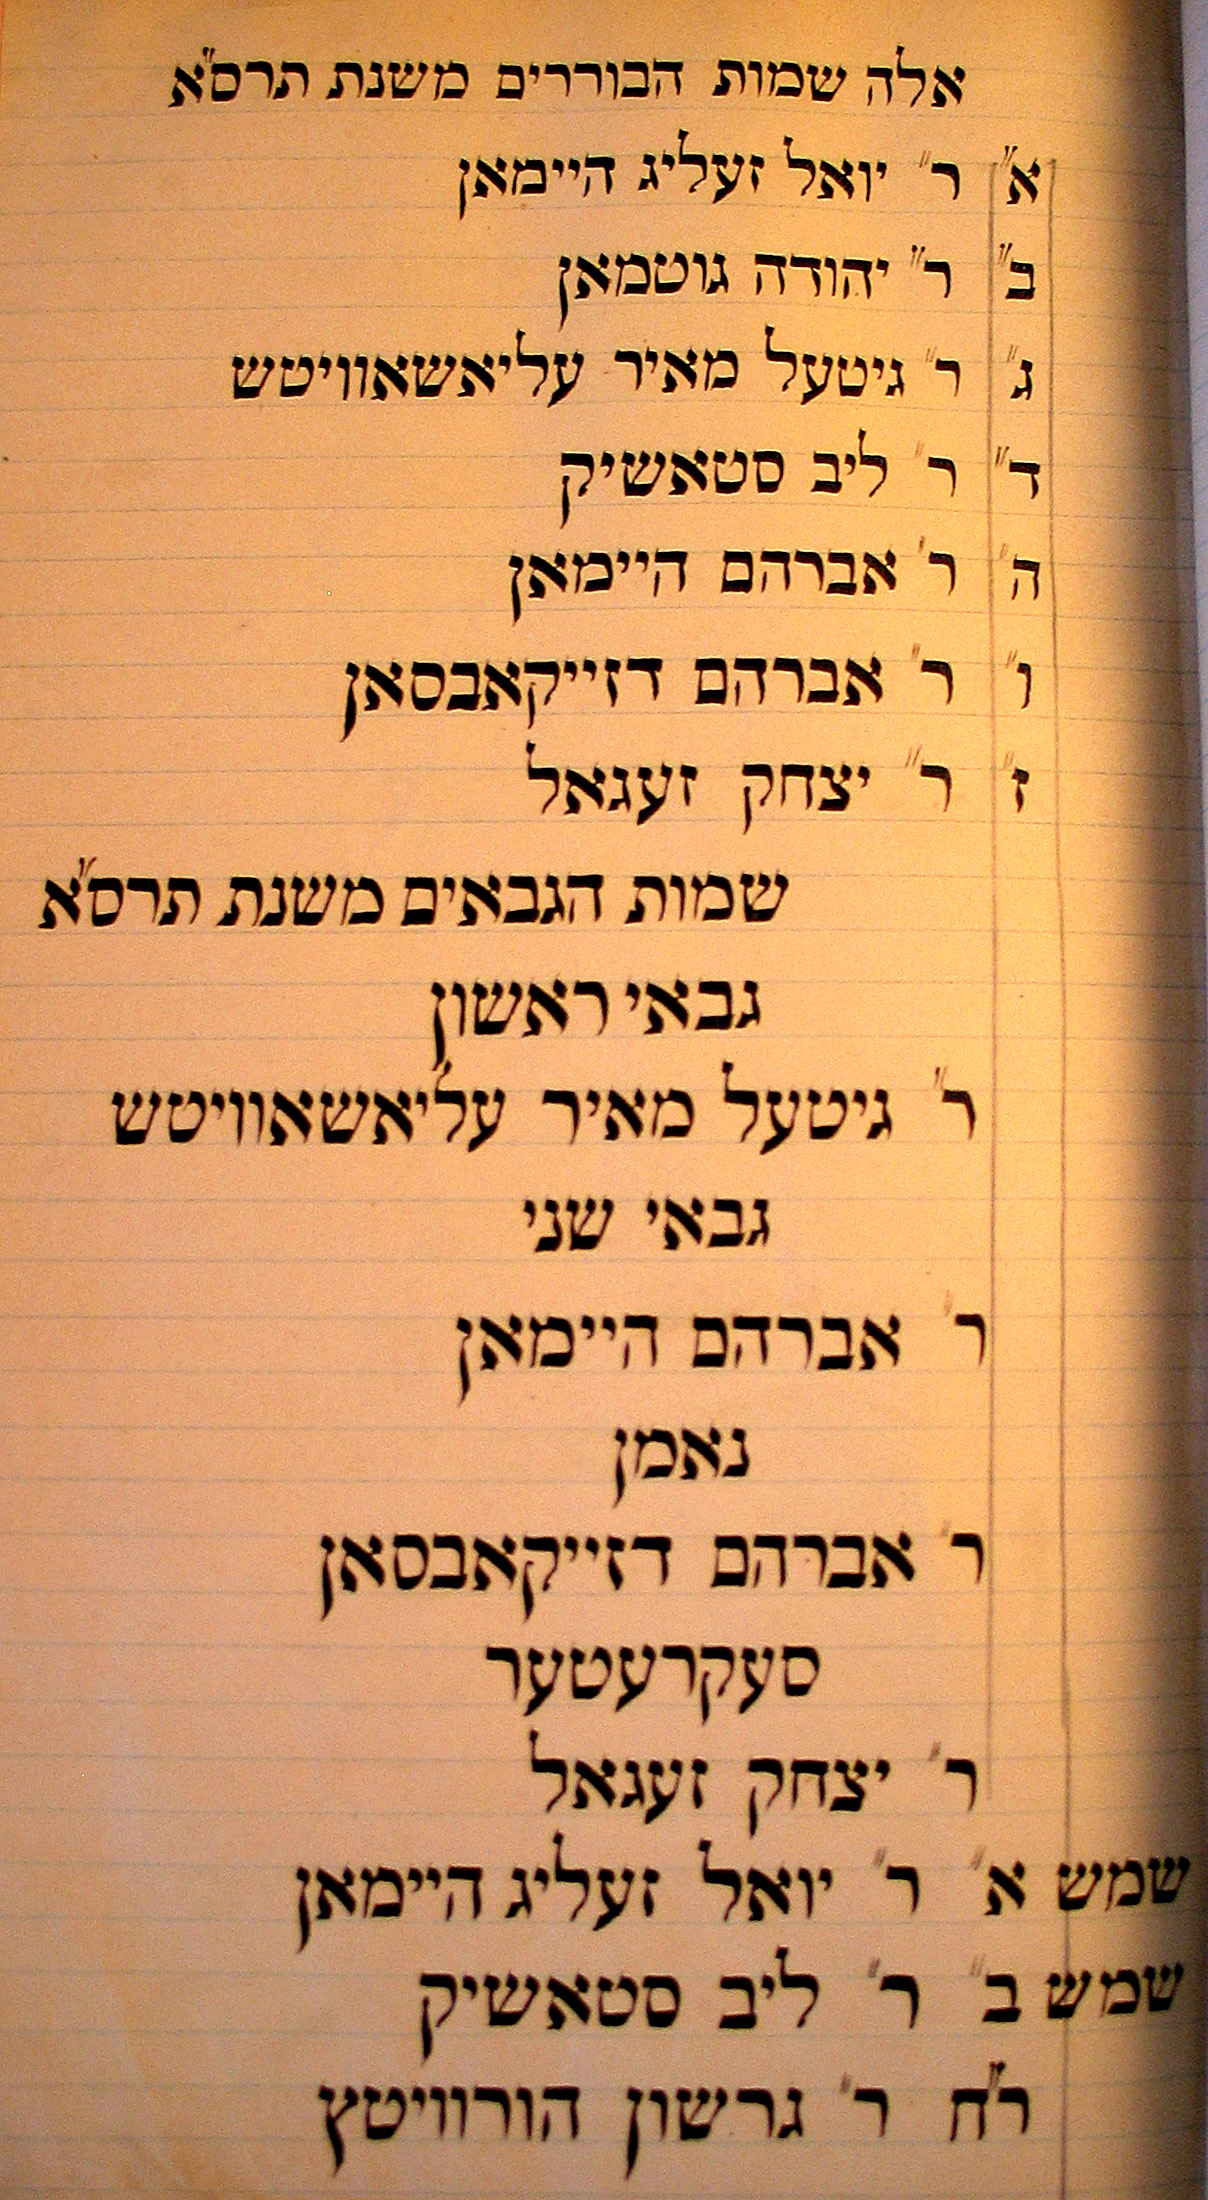 אלה שמות הבוררים משנת תרס"א
א" ר" יואל זעליג היימאן
ב" ר" יהודה גוטמאן
ג" ר" גיטעל מאיר עליאשאוויטש
ד" ר" ליב סטאשיק
ה" ר' אברהם היימאן
ו" ר" אברהם דזייקאבסאן
ז" ר" יצחק זעגאל
שמות הגבאים משנת תרס"א
גבאי ראשון
ר" גיטעל מאיר עליאשאוויטש
גבאי שני
ר' אברהם היימאן
נאמן
ר' אברהם דזייקאבסאן
סעקרעטער
ר' יצחק זעגאל
שמש א" ר" יואל זעליג היימאן
שמש ב" ר" ליב סטאשיק
ר"ח ר" גרשון הורוויטץ